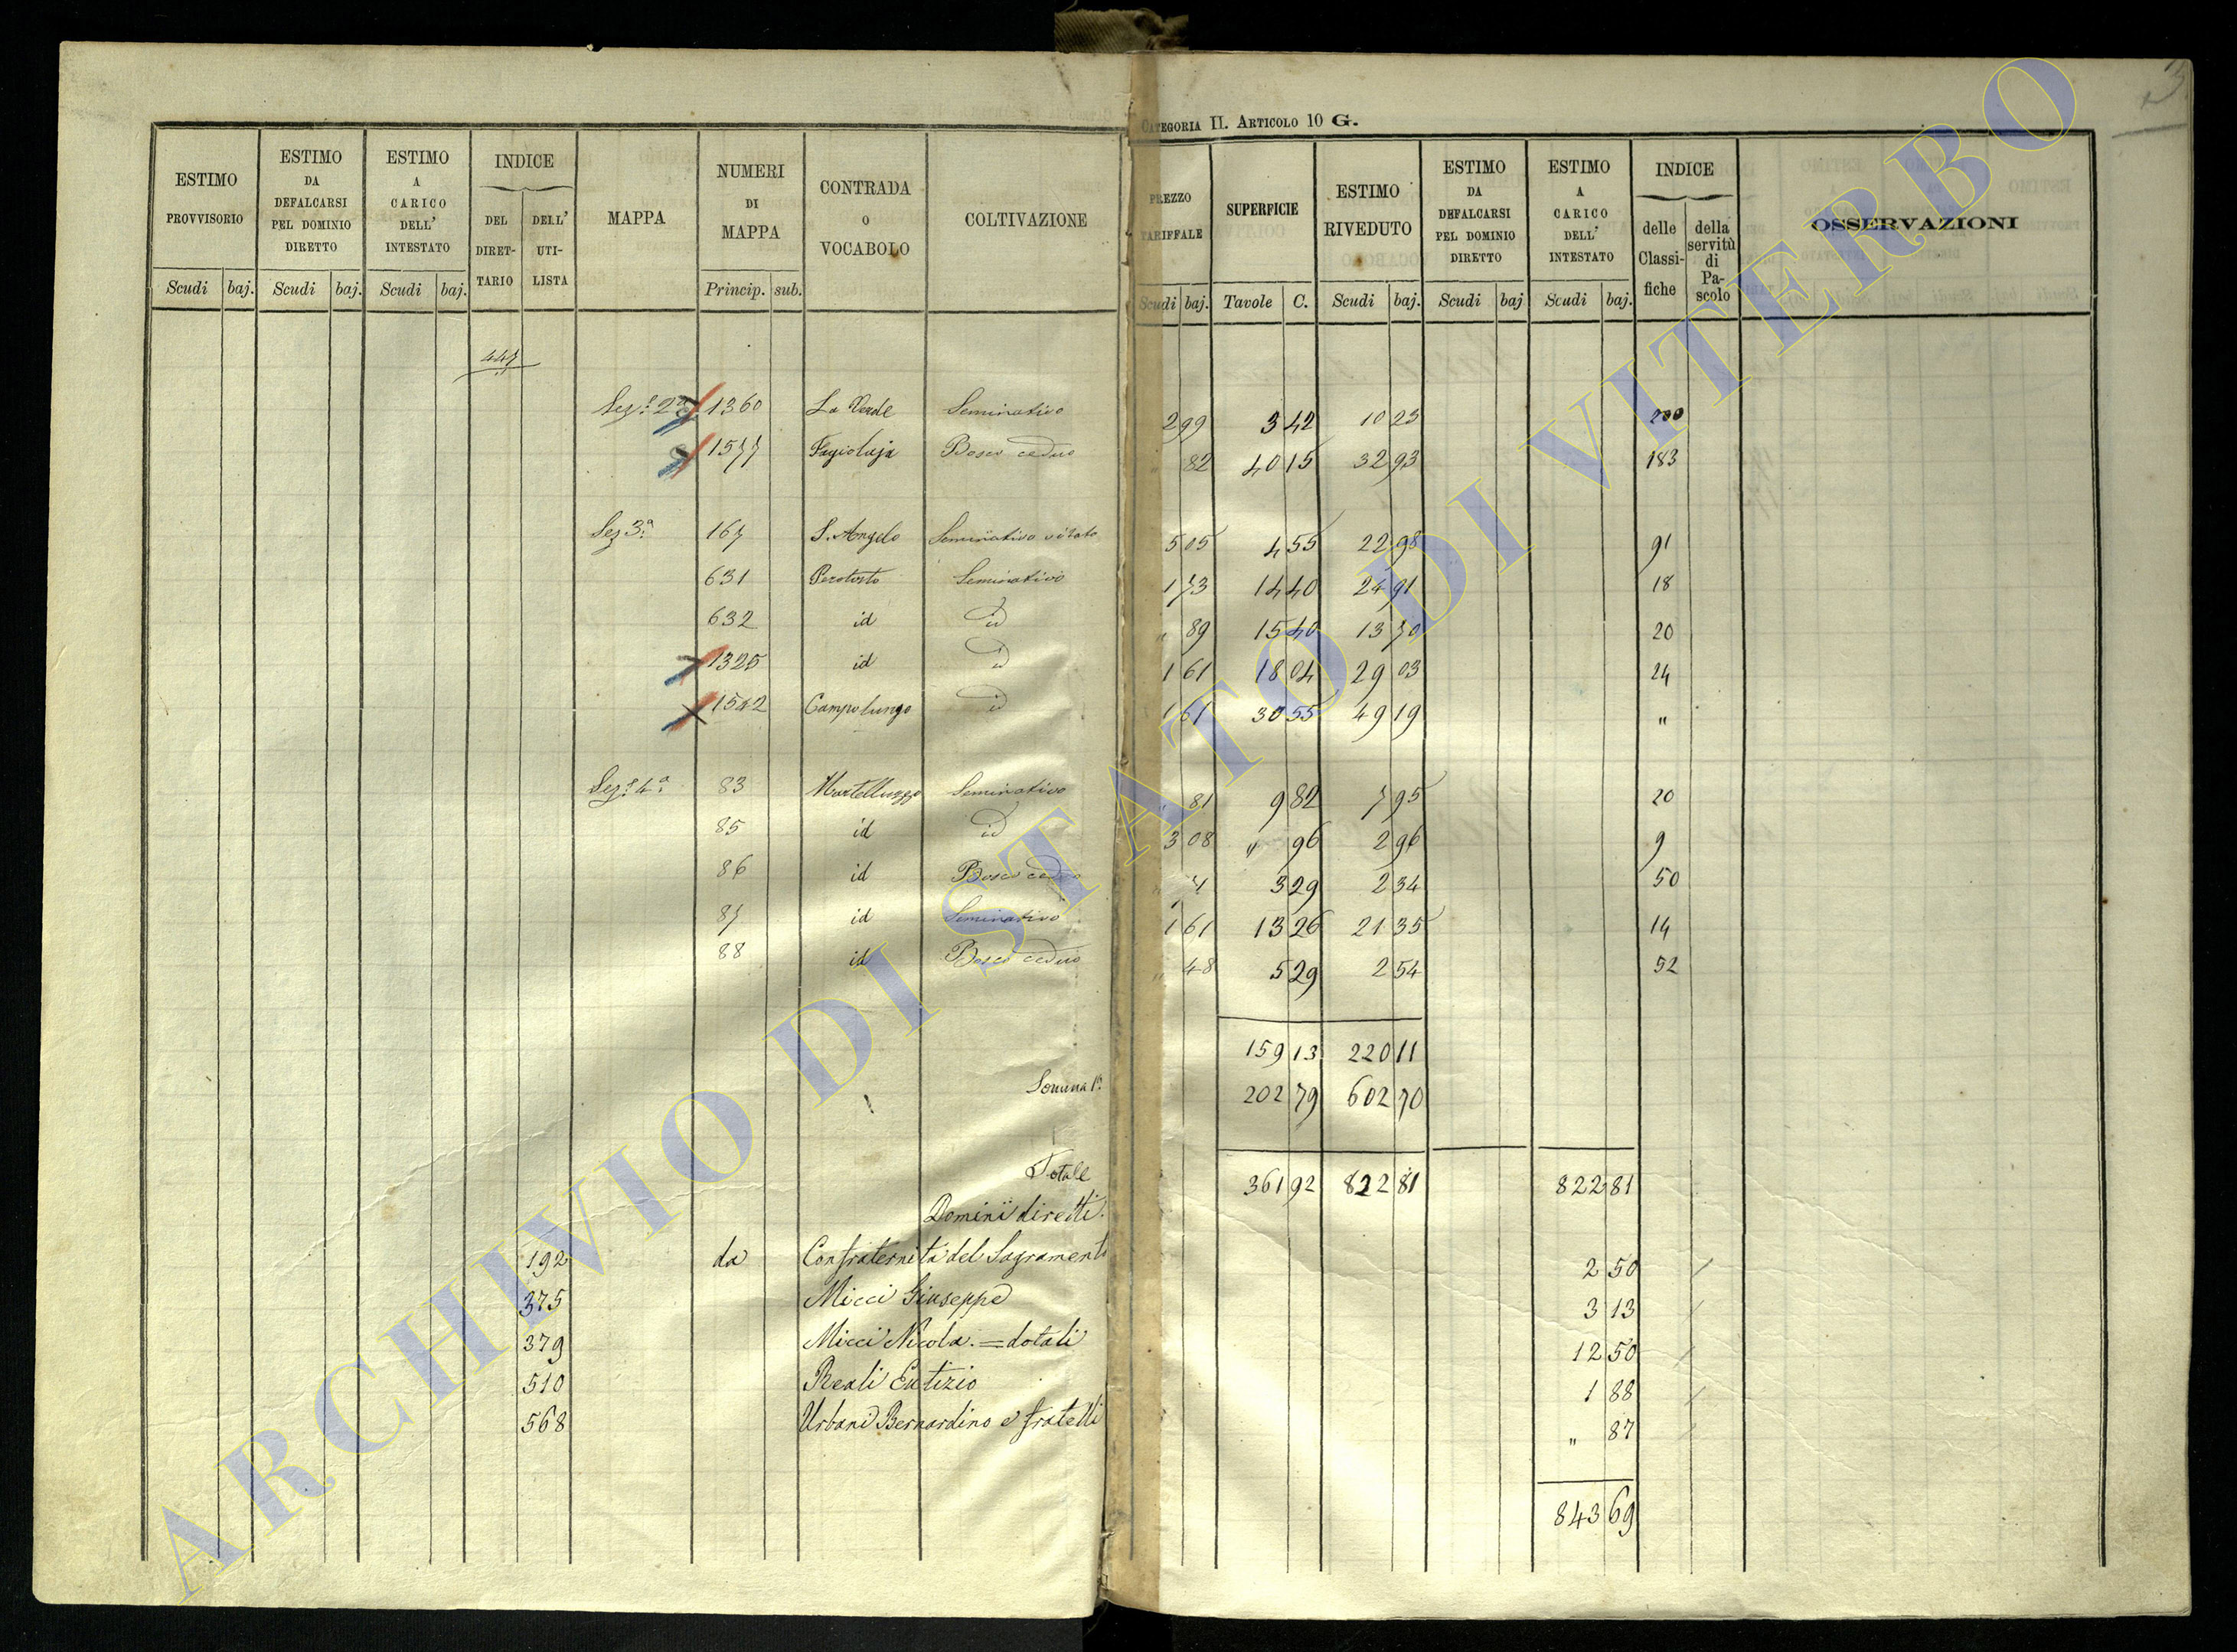 CATEGORIA II. ARTICOLO 10 G.
ESTIMO PROVVISORIO Scudi baj.
ESTIMO DA DEFALCARSI PEL DOMINIO DIRETTO Scudi baj.
ESTIMO A CARICO DELL' INTESTATO Scudi baj.
INDICE DEL DIRETTARIO DELL' UTILISTA
MAPPA
NUMERI DI MAPPA Princip. sub.
CONTRADA O VOCABOLO
COLTIVAZIONE
PREZZO TARIFFALE Scudi baj.
SUPERFICIE Tavole C.
ESTIMO RIVEDUTO Scudi baj.
ESTIMO DA DEFALCARSI PEL DOMINIO DIRETTO Scudi baj
ESTIMO A CARICO DELL' INTESTATO Scudi baj.
INDICE delle Classifiche della servitù di Pascolo
OSSERVAZIONI
447
Sez.e 2a 1360 La Verde Seminativo 2 99 3 42 10 23 200
1577 Fagiolaja Bosco ceduo " 82 40 15 32 93 183
Sez 3.a 167 S. Angelo Seminativo vitato 5 05 4 55 22 98 91
631 Seminativo 1 73 14 40 24 91 18
632 id id " 89 15 40 13 70 20
1325 id id 1 61 18 04 29 03 24
1542 Campo lungo id 1 61 30 55 49 19 "
Sez.e 4.a 83 Martelluzzo Seminativo " 81 9 82 7 95 20
85 id id 3 08 " 96 2 96 9
86 id Bosco ceduo 3 29 2 34 50
87 id Seminativo 1 61 13 26 21 35 14
88 id Bosco ceduo " 48 5 29 2 54 52
159 13 220 11
Somma 1a 202 79 602 70
Totale 361 92 822 81 822 81
Dominii diretti.
192 da Confraternita del Sagramento 2 50
375 Micci Giuseppe 3 13
379 Micci Nicola. = dotali 12 50
510 Reali Eutizio 1 88
568 Urbani Bernardino e fratelli " 87
843 69
ARCHIVIO DI STATO DI VITERBO